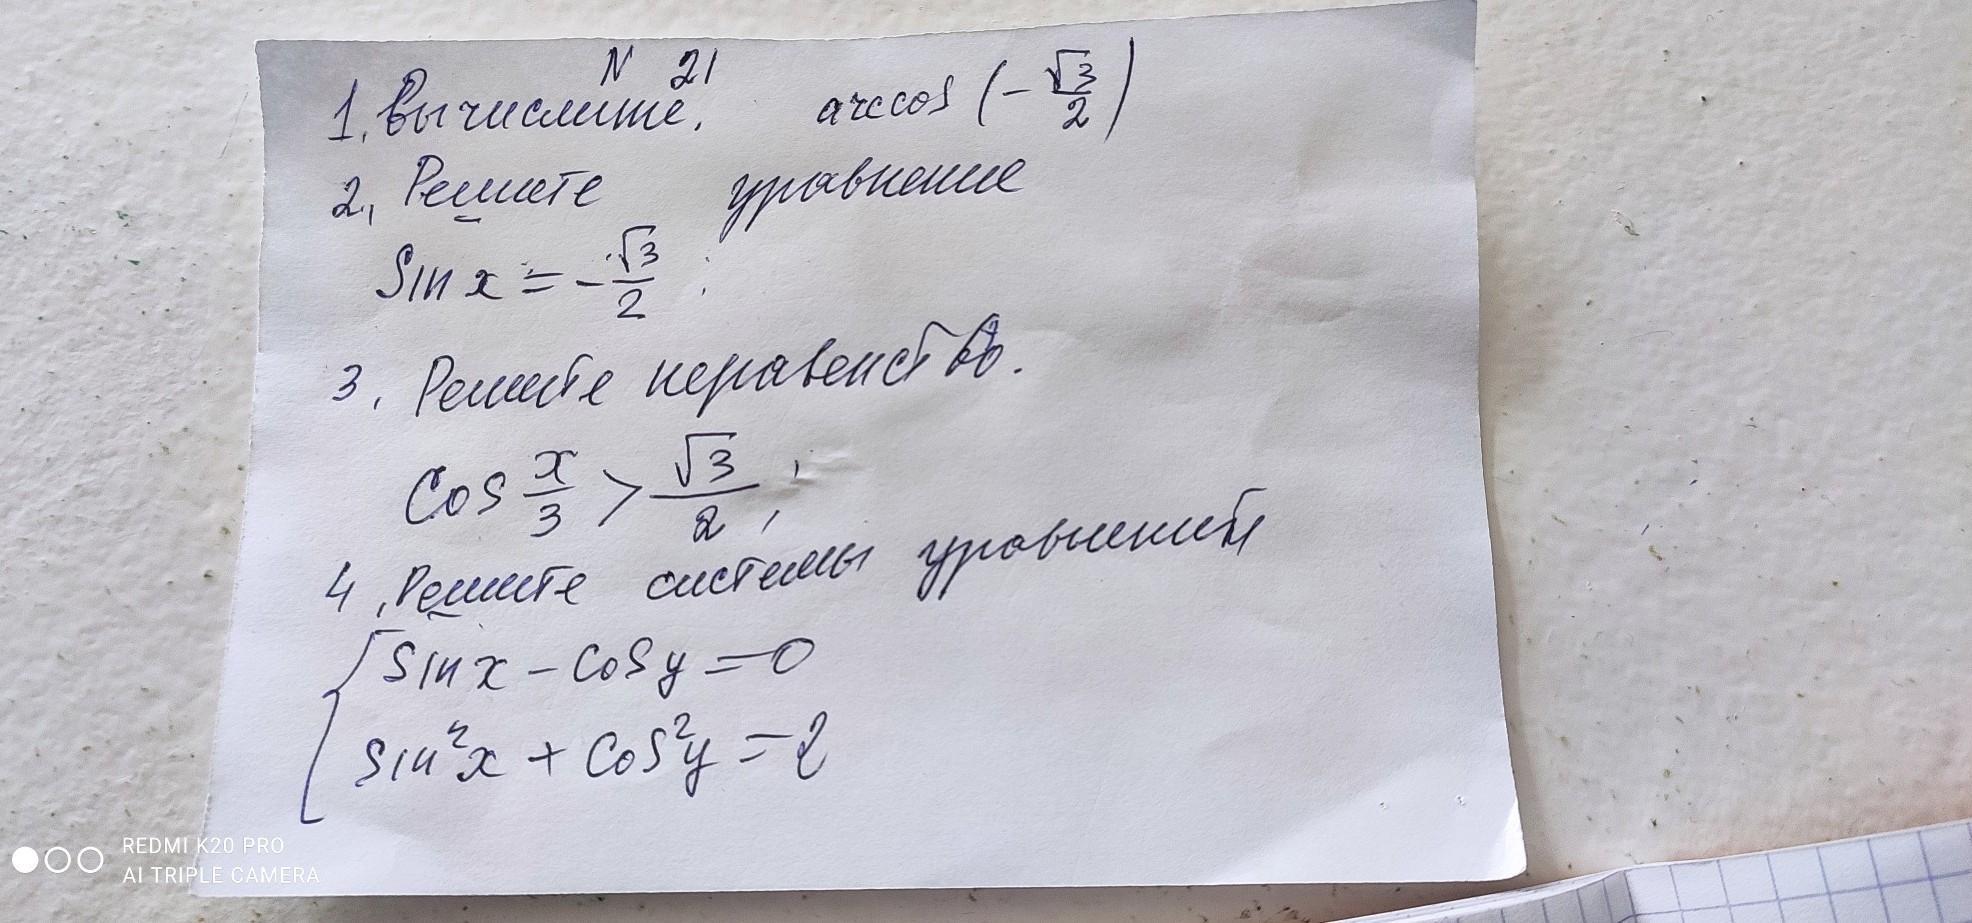 N 21
1. Вычислите. arccos (-√3/2)
2. Решите уравнение
Sin x = -√3/2;
3. Решите неравенство.
Cos x/3 > √3/2;
4. Решите системы уравнений
{Sin x - Cos y = 0
Sin²x + Cos²y = 2
REDMI K20 PRO
AI TRIPLE CAMERA